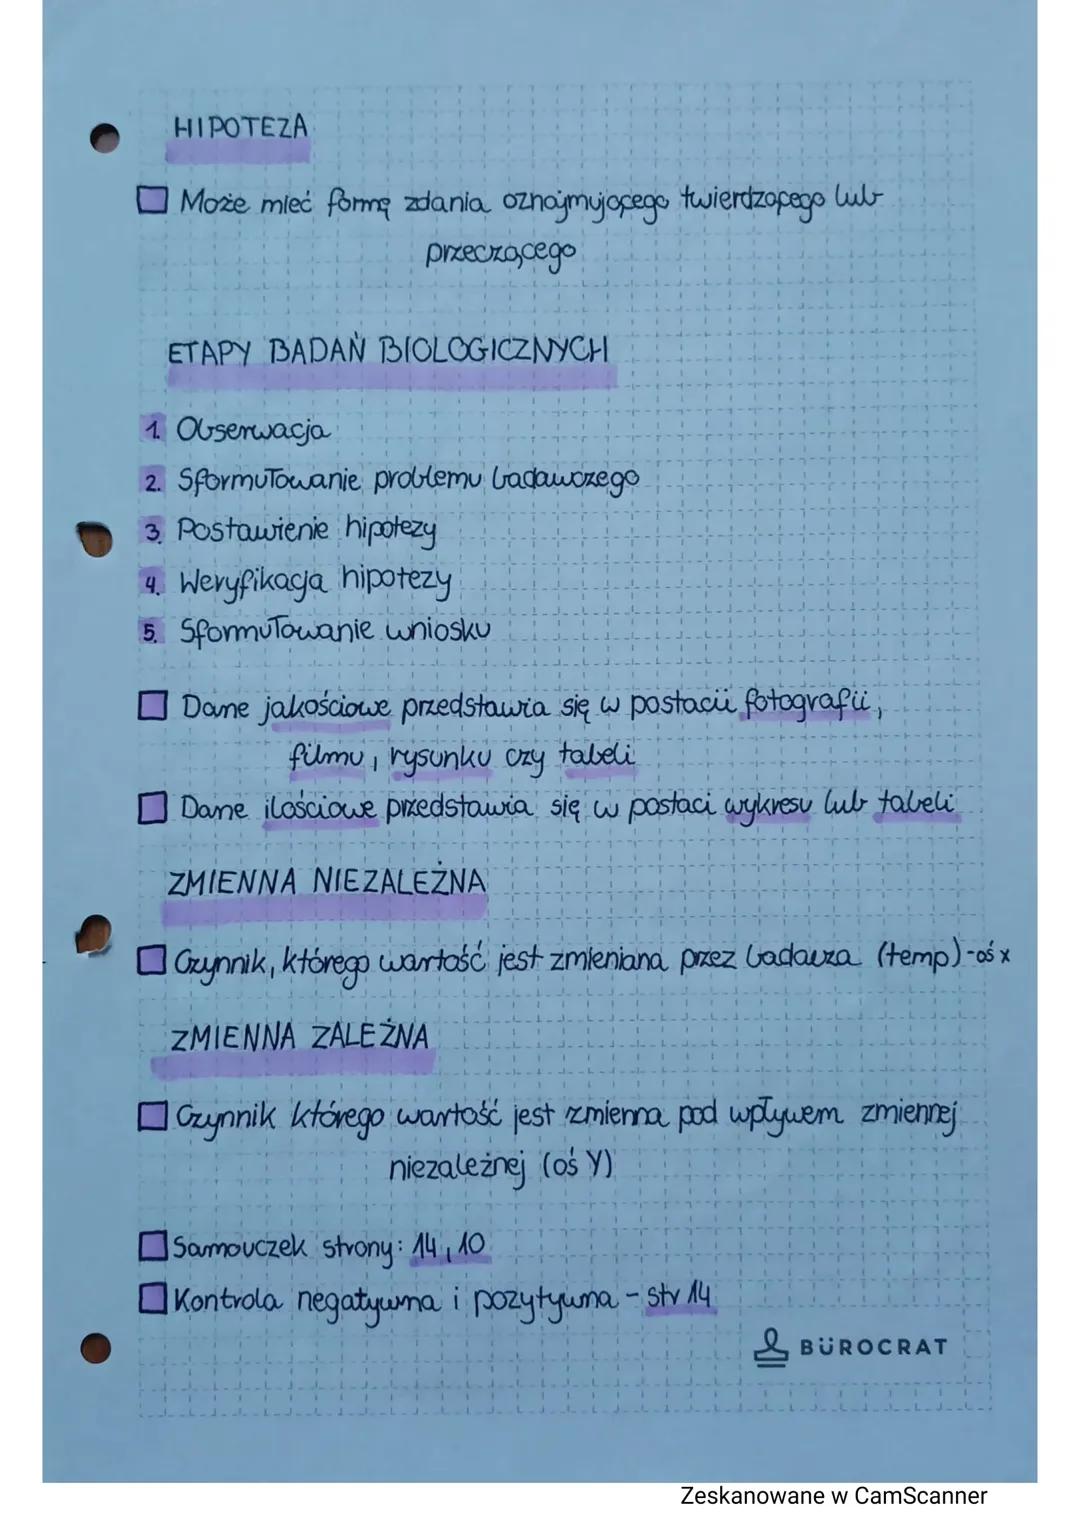 HIPOTEZA
Może mieć formę zdania oznajmującego twierdzącego lub
przeczącego
ETAPY BADAŃ BIOLOGICZNYCH
1. Obserwacja
2. Sformułowanie problemu badawczego
3. Postawienie hipotezy
4. Weryfikacja hipotezy
5. Sformułowanie wniosku
Dane jakościowe przedstawia się w postacii fotografii,
filmu, rysunku czy tabeli
Dane ilościowe przedstawia się w postaci wykresu lub tabeli
ZMIENNA NIEZALEŻNA
Czynnik, którego wartość jest zmieniana przez badacza (temp)-oś x
ZMIENNA ZALEŻNA
Czynnik którego wartość jest zmienna pod wpływem zmiennej
niezależnej (oś Y)
Samouczek strony: 14, 10
Kontrola negatywna i pozytywna - str 14
BÜROCRAT
Zeskanowane w CamScanner